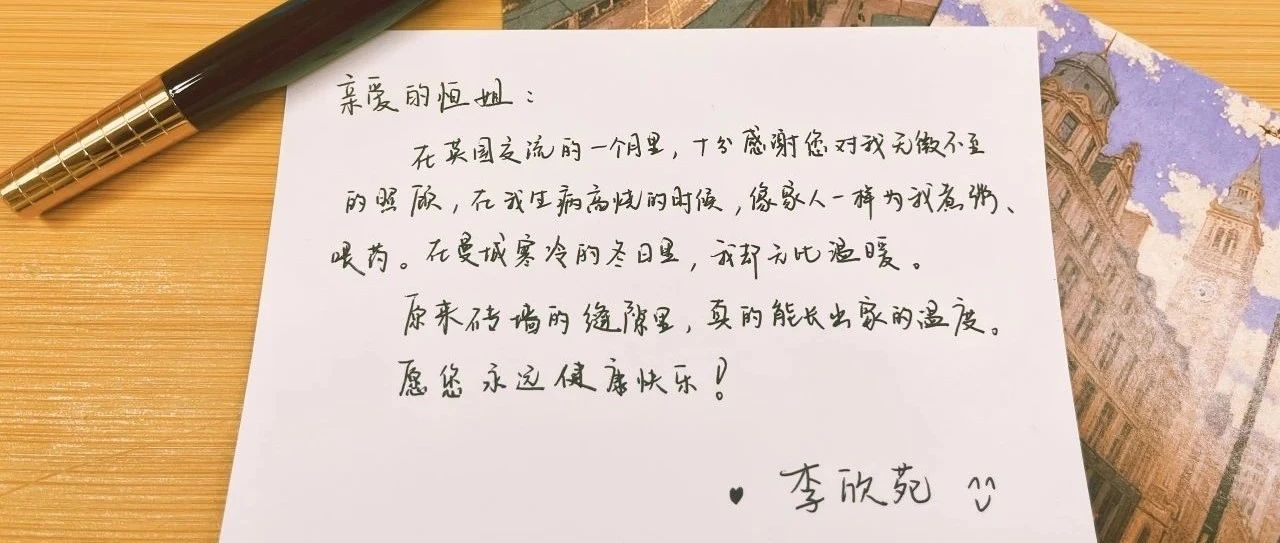 亲爱的恒姐：
在英国交流的一个月里，十分感谢您对我无微不至
的照顾，在我生病高烧的时候，像家人一样为我煮粥、
喂药。在曼城寒冷的冬日里，我却无比温暖。
原来砖墙的缝隙里，真的能长出家的温度。
愿您永远健康快乐！
♥ 李欣苑 ^^